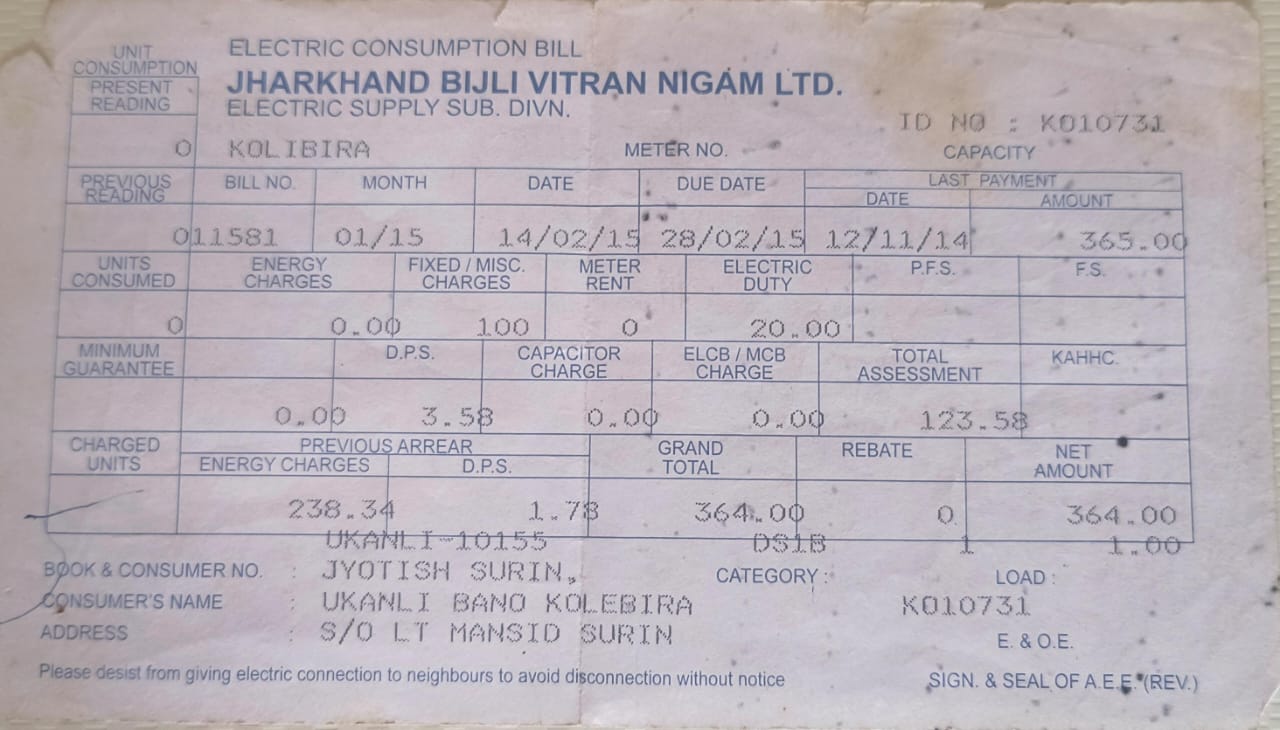 UNIT CONSUMPTION
ELECTRIC CONSUMPTION BILL
JHARKHAND BIJLI VITRAN NIGAM LTD.
ELECTRIC SUPPLY SUB. DIVN.
PRESENT READING
ID NO : K010731
0 KOLIBIRA METER NO. CAPACITY
PREVIOUS READING BILL NO. MONTH DATE DUE DATE LAST PAYMENT
DATE AMOUNT
011581 01/15 14/02/15 28/02/15 12/11/14 365.00
UNITS CONSUMED ENERGY CHARGES FIXED / MISC. CHARGES METER RENT ELECTRIC DUTY P.F.S. F.S.
0 0.00 100 0 20.00
MINIMUM GUARANTEE D.P.S. CAPACITOR CHARGE ELCB / MCB CHARGE TOTAL ASSESSMENT KAHHC.
0.00 3.58 0.00 0.00 123.58
CHARGED UNITS PREVIOUS ARREAR GRAND TOTAL REBATE NET AMOUNT
ENERGY CHARGES D.P.S.
238.34 1.78 364.00 0 364.00
UKANLI-10155 DS1B 1 1.00
BOOK & CONSUMER NO. : JYOTISH SURIN, CATEGORY : LOAD :
CONSUMER'S NAME : UKANLI BANO KOLEBIRA K010731
ADDRESS : S/O LT MANSID SURIN E. & O.E.
Please desist from giving electric connection to neighbours to avoid disconnection without notice SIGN. & SEAL OF A.E.E. (REV.)